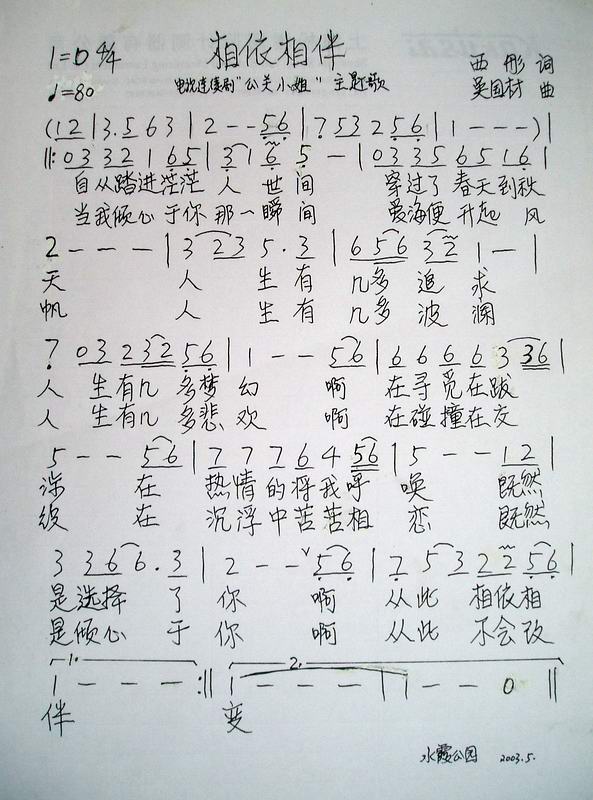 1=D 4/4 相依相伴 西彤 词
♩=80 电视连续剧"公关小姐"主题歌 吴国材 曲
(1 2 | 3. 5 6 3 | 2 - - 5 6 | 7 5 3 2 5 6 | 1 - - - ) |
‖: 0 3 3 2 1 6 5 | 3 1 6 5 - | 0 3 3 5 6 5 1 6 |
自从踏进茫茫 人 世 间 穿过了 春天到秋
当我倾心 于你 那一瞬 间 爱海便 升起 风
2 - - - | 3 2 3 5 . 3 | 6 5 6 3 2 1 - |
天 人 生 有 几多 追 求
帆 人 生 有 几多 波 澜
7 0 3 2 3 2 5 6 | 1 - - 5 6 | 6 6 6 6 3 3 6 |
人 生有几 多梦 幻 啊 在寻觅在跋
人 生有几 多悲 欢 啊 在碰撞在交
5 - - 5 6 | 7 7 7 6 4 5 6 | 5 - - 1 2 |
涉 在 热情的将我呼 唤 既然
在 沉浮中苦苦相 恋 既然
3 3 6 6 . 3 | 2 - - ∨ 5 6 | 7 5 3 2 2 5 6 |
是选择 了 你 啊 从此 相依相
是倾心 于 你 啊 从此 不会改
1. 2.
1 - - - :‖ 1 - - - | 1 - - 0 ‖
伴 变
水霞公园 2003.5.